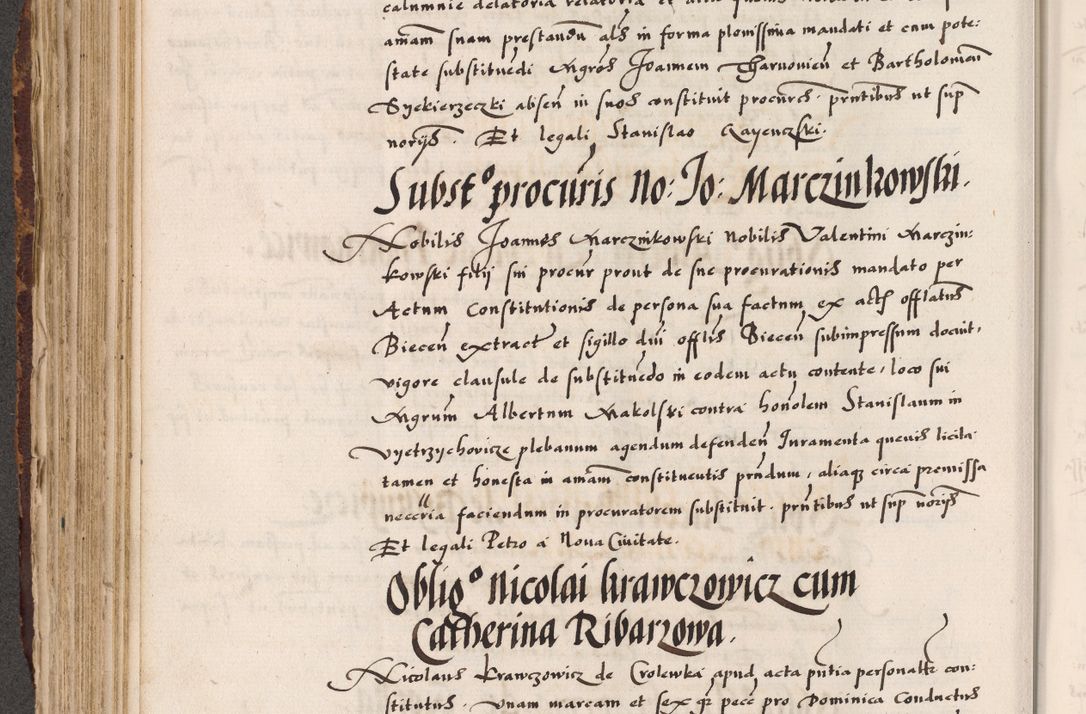 calumnie delatoria relatoria et
amam suam prestandu als in forma plenissima mandati et cum pote:
state substituedi Mgros Joannem Tharnovien et Bartholomeum
Syekierzeczki absen in suos constituit procures. pntibus ut sup
norijs. Et legali Stanislao Kayenczki.
Subst° procuris No: Jo: Marczinkowski.
Nobilis Joannes Marczinkowski nobilis Valentini Marczin:
kowski filij sui procur prout de sue procurationis mandato per
Actum Constitutionis de persona sua factum ex actis offlatus
Biecen extract et sigillo dni offlis Biecen subimpressum docuit,
vigore clausule de substituedo in eodem actu contente, loco sui
Mgrum Albertum Makolski contra honolem Stanislaum in
Vyetrzychovicze plebanum agendum defenden Juramenta quevis licita
tamen et honesta in amam constituentis prndum, aliaq circa premissa
necceria faciendum in procuratorem substituit. pntibus ut sup norijs
Et legali Petro a Nova Civitate.
Oblig° Nicolai krawczowicz cum
Catherina Ribarzowa.
Nicolaus Krawczowicz de Crolewka apud acta pntia personalr con:
stitutus. Unam marcam et sex gr pecc pro Dominica Conductus